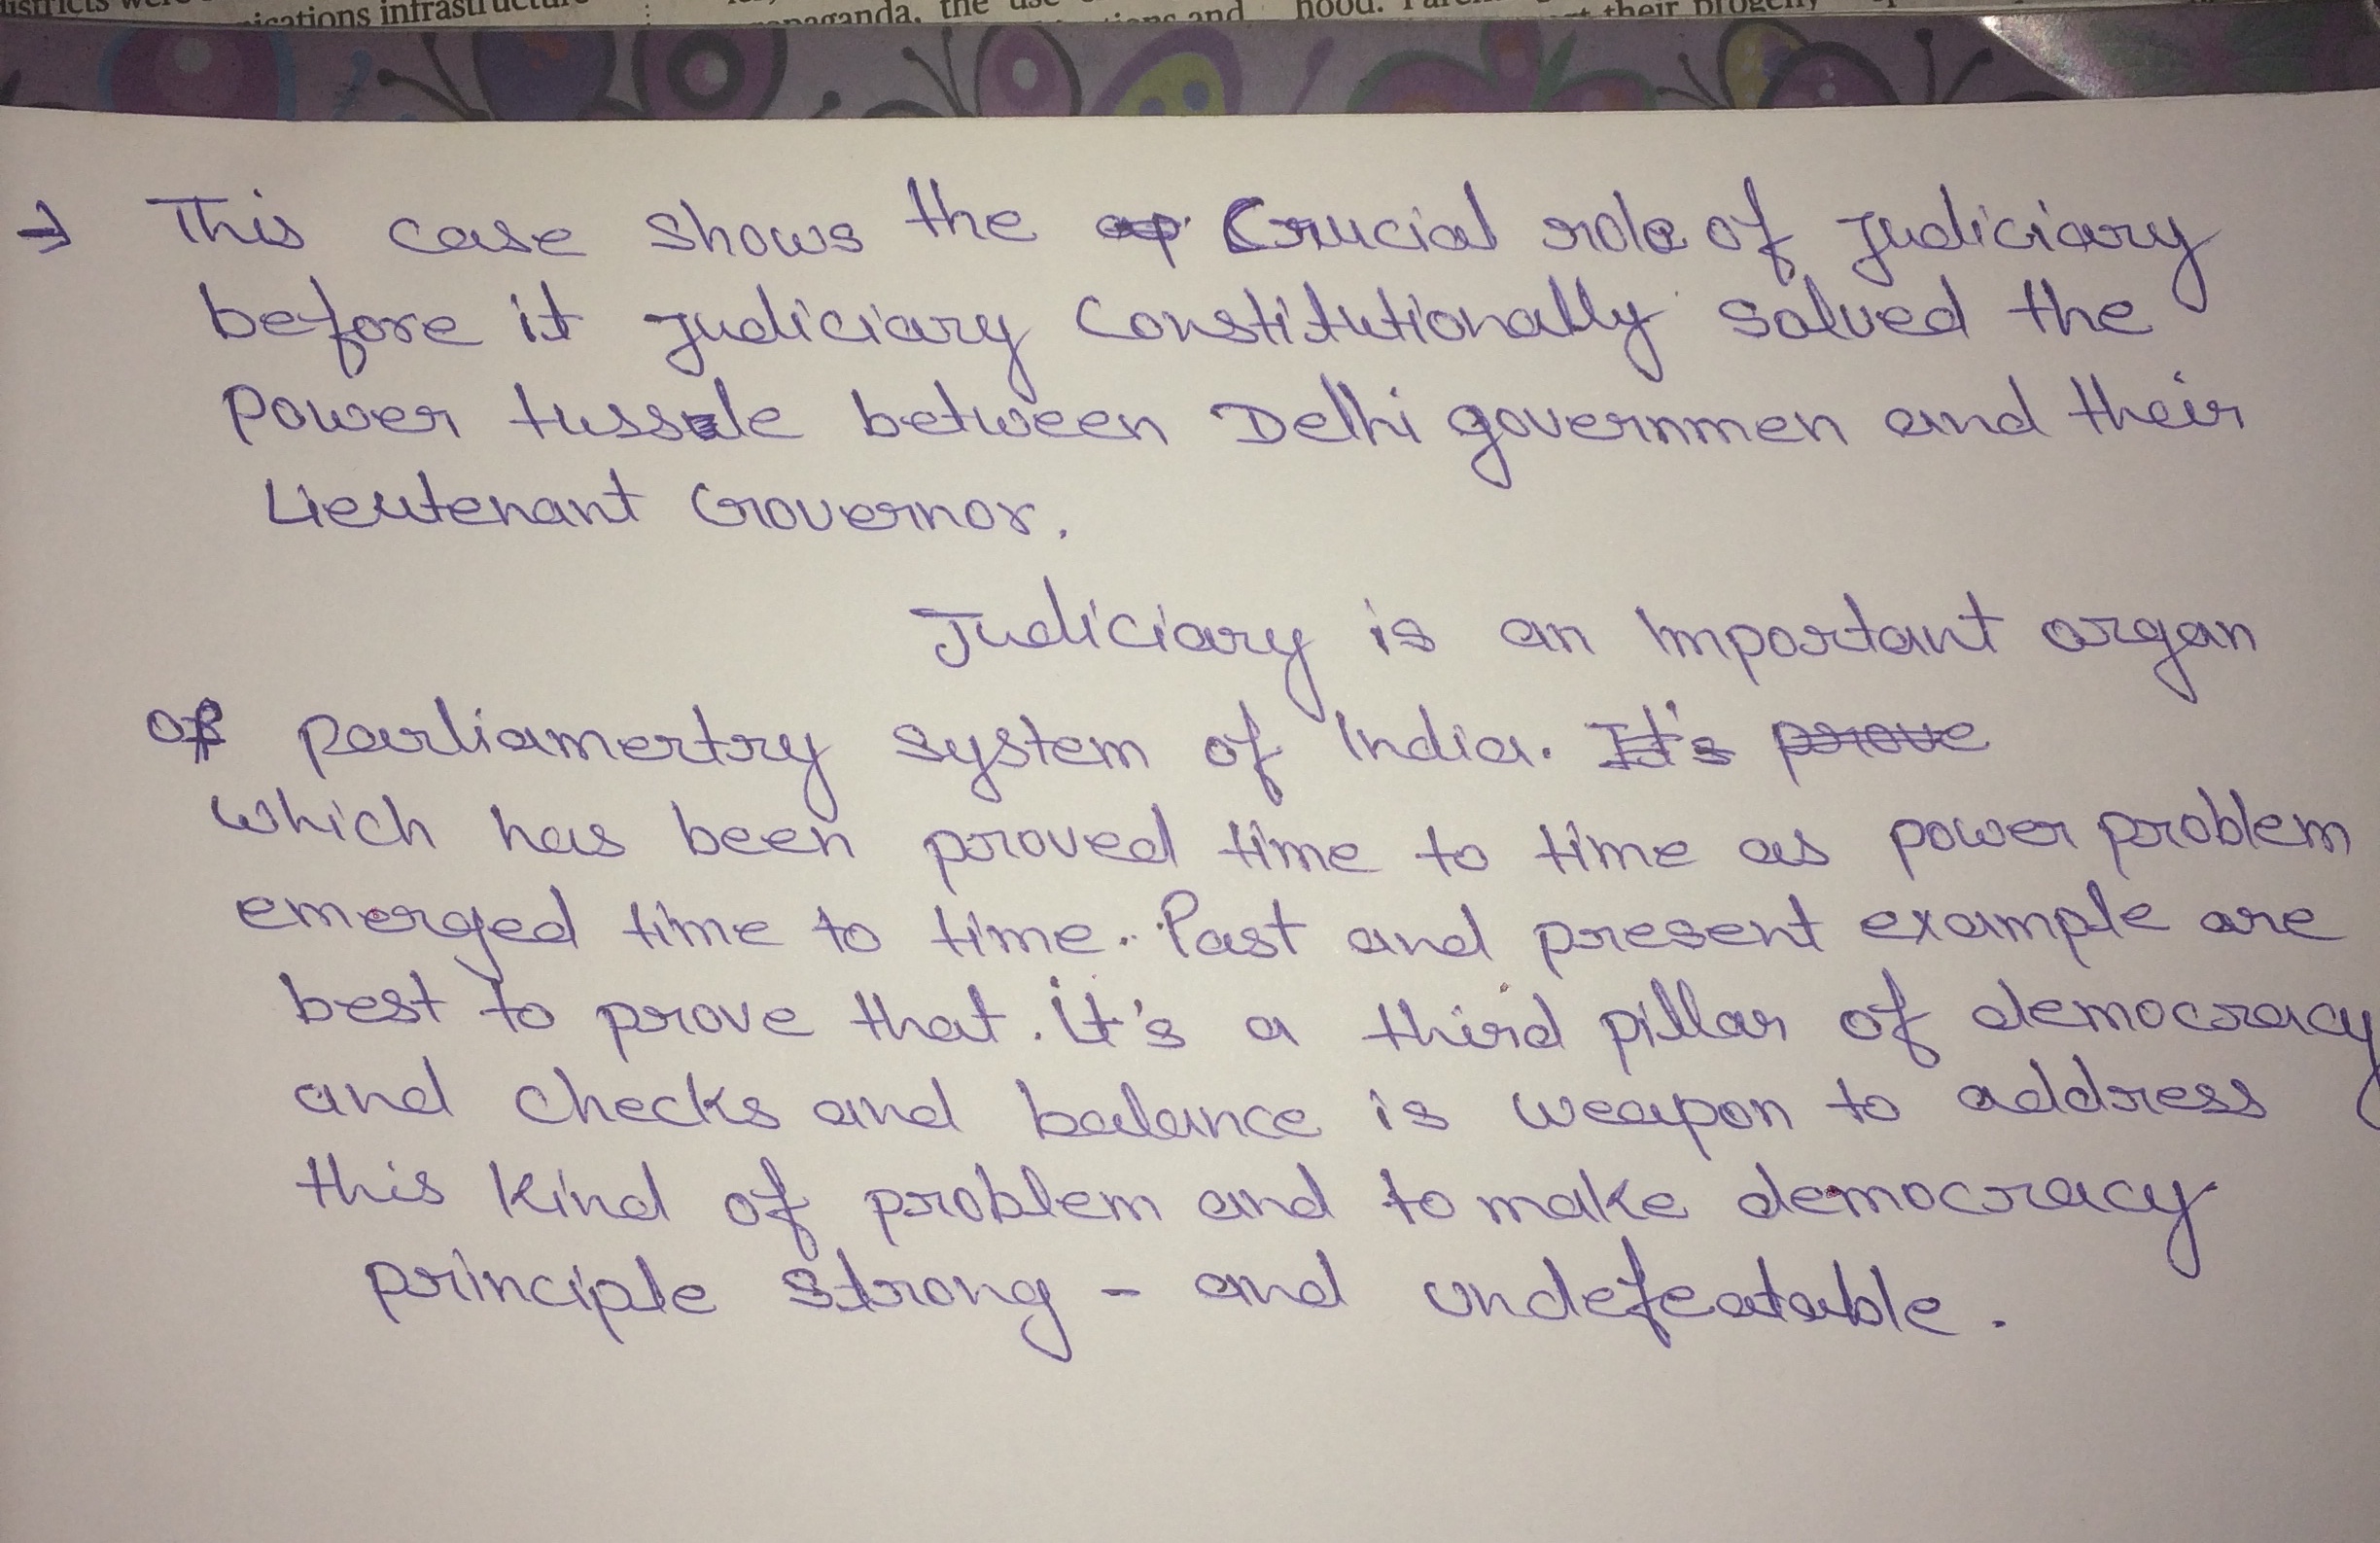 ications infrastructure
paganda, the use
and
hood.
their progeny
→ This case shows the Crucial role of judiciary
before it judiciary Constitutionally solved the
Power tussle between Delhi governmen and their
Lieutenant Governor.
Judiciary is an Important organ
of parliamertry system of India. It's prove
which has been proved time to time as power problem
emerged time to time.. Past and present example are
best to prove that. it's a third pillar of democracy
and checks and balance is weapon to address
this kind of problem and to make democracy
principle strong - and undefeatable.